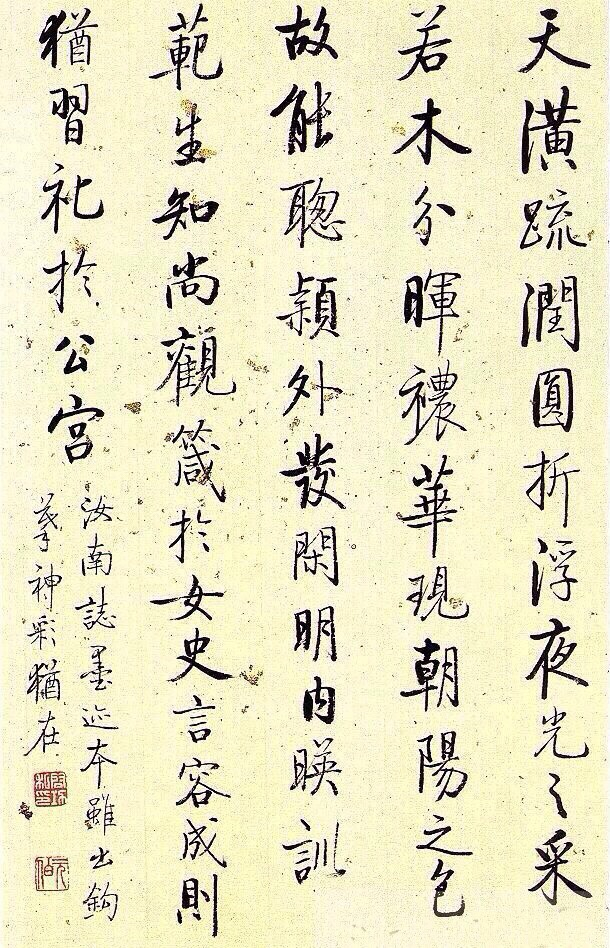 天潢疏潤圓折浮夜光之采
若木分暉襛華現朝陽之色
故能聰穎外發閑明內暎訓
範生知尚觀箴於女史言容成則
猶習礼於公宮
汝南誌墨迹本雖出鈎
摹神彩猶在